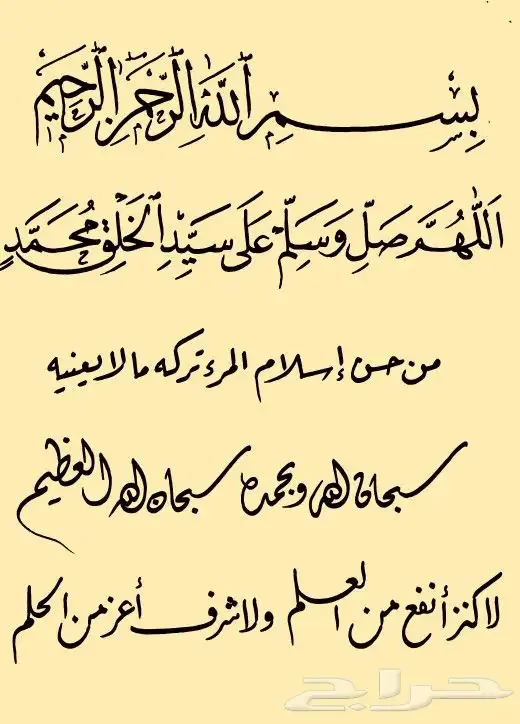 بِسْمِ ٱللَّهِ ٱلرَّحْمَٰنِ ٱلرَّحِيمِ
اَللّٰهُمَّ صَلِّ وَسَلِّمْ عَلَى سَيِّدِ ٱلْخَلْقِ مُحَمَّدٍ
من حسن إسلام المرء تركه مالا يعنيه
سبحان الله وبحمده سبحان الله العظيم
لا كنز أنفع من العلم ولا شرف أعز من الحلم
حراج